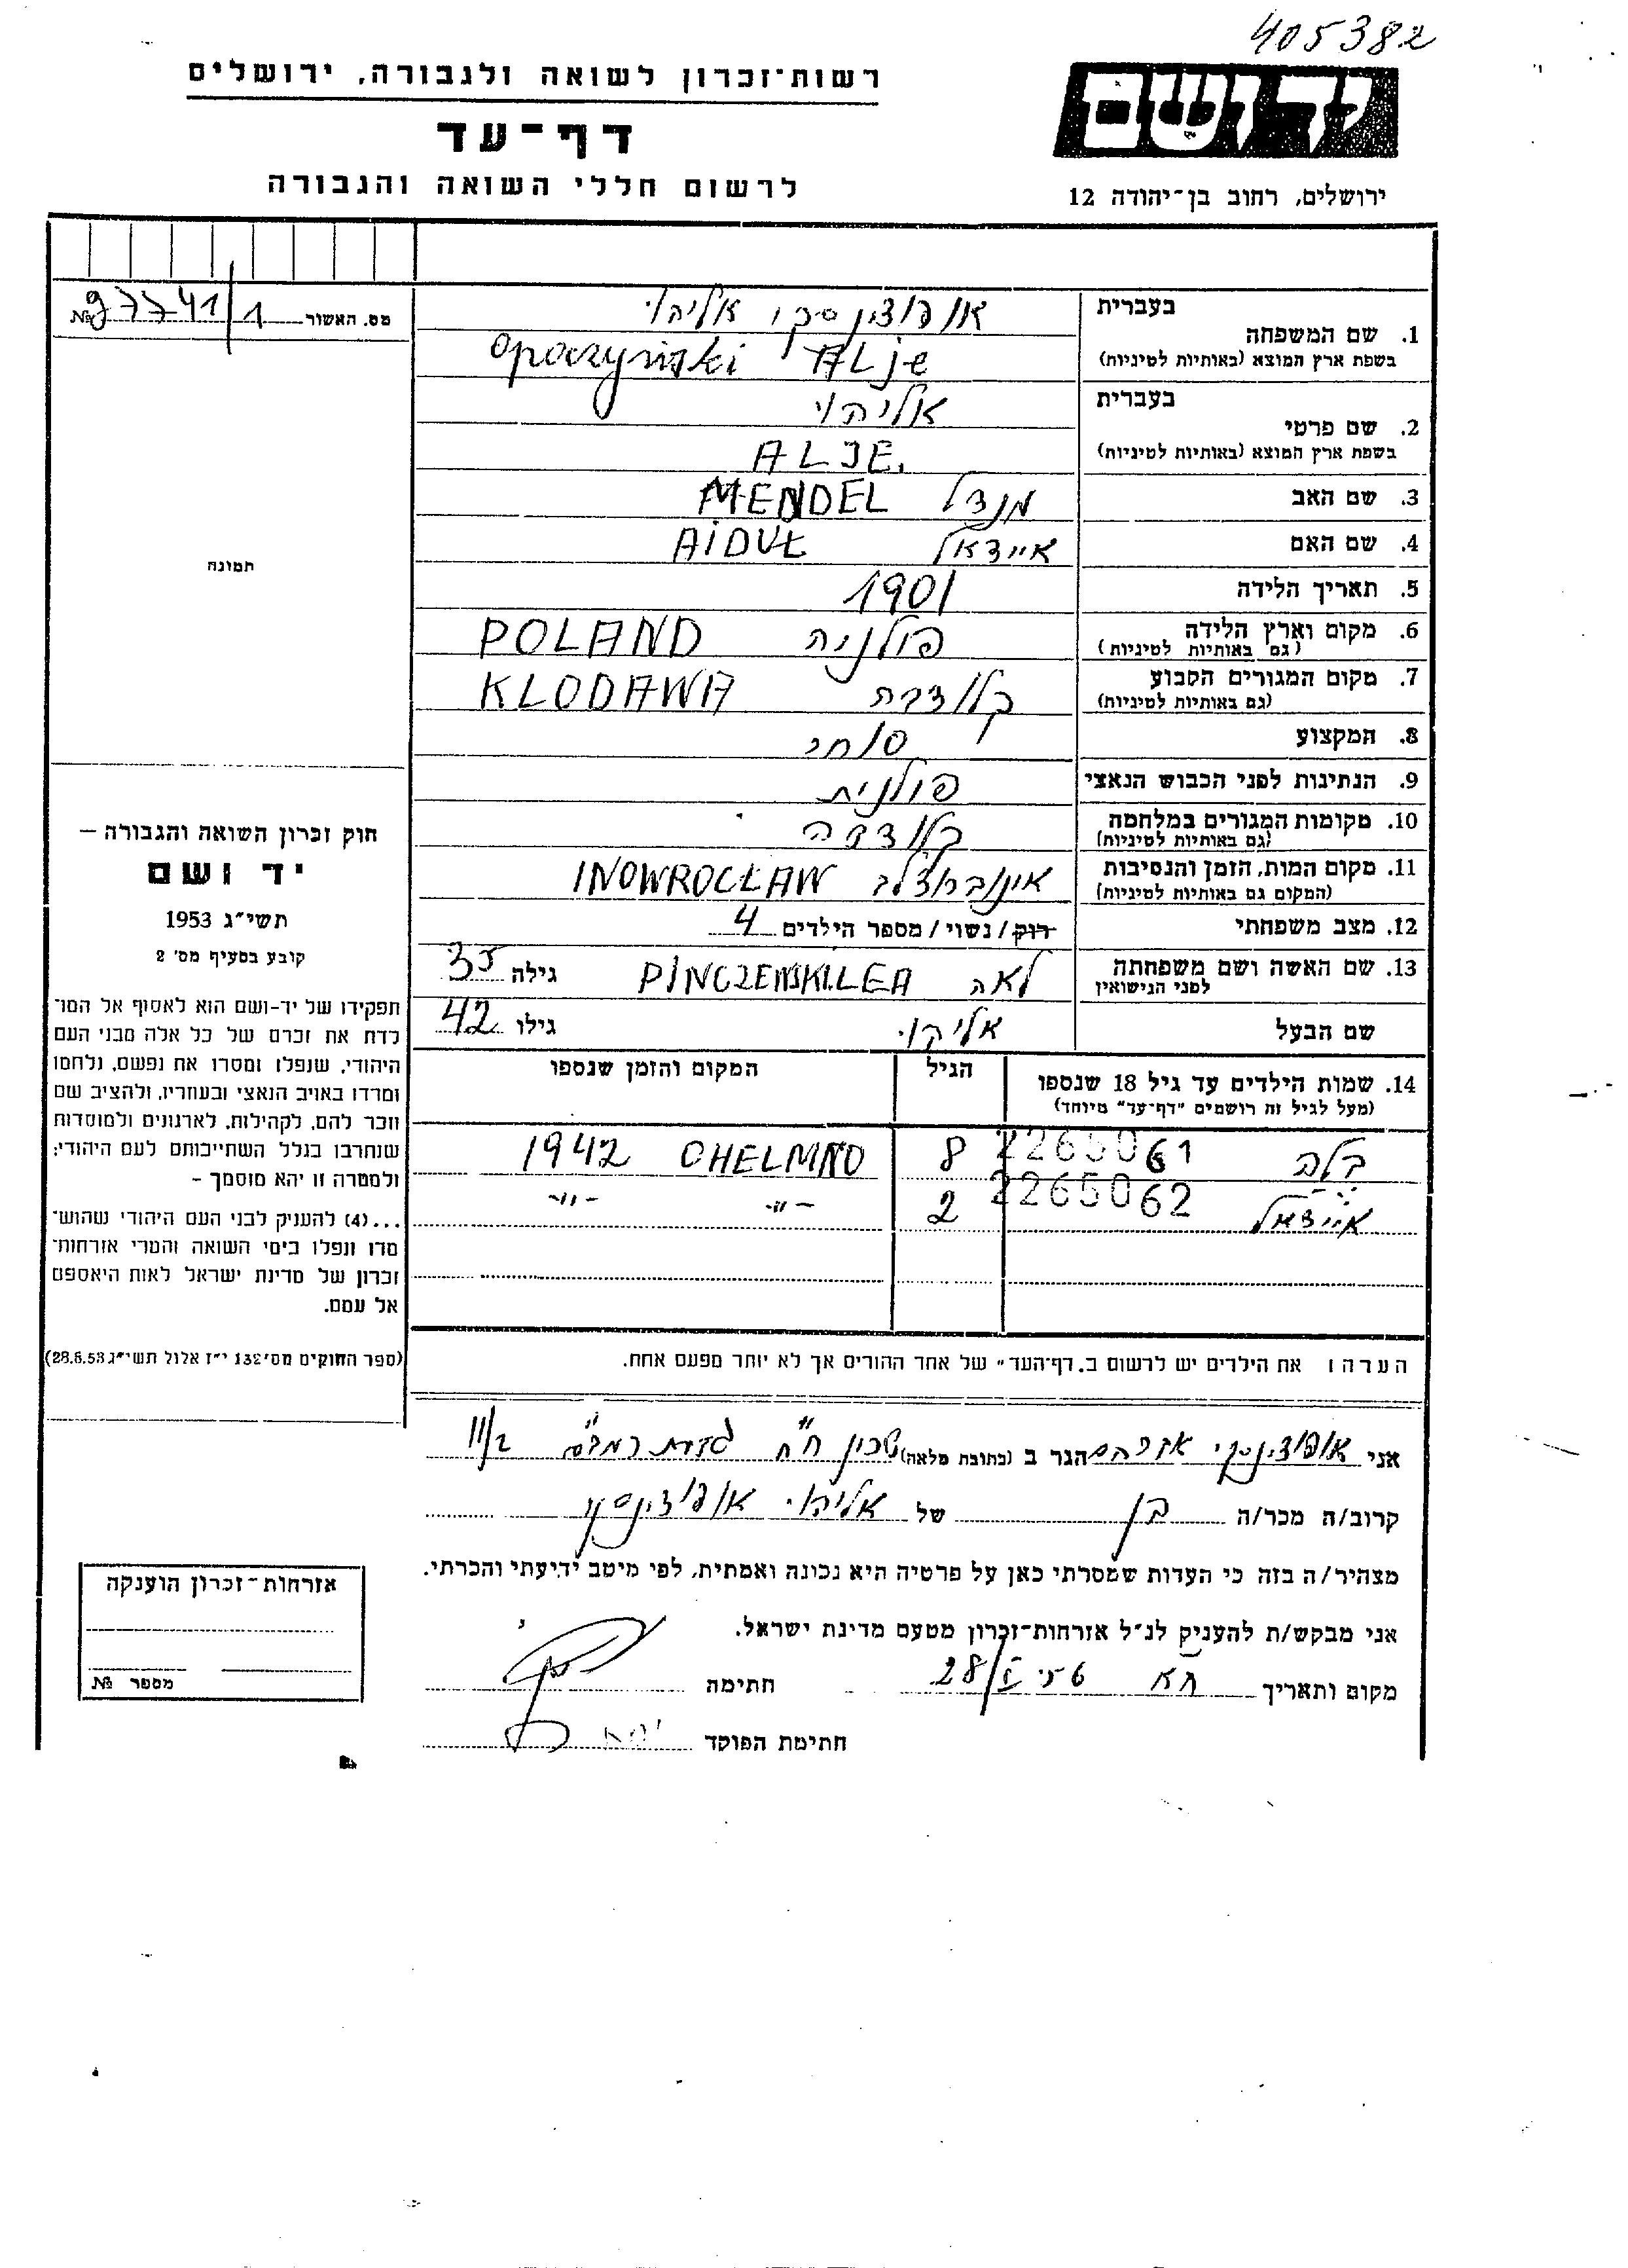 405382
רשות־זכרון לשואה ולגבורה, ירושלים
דף-עד
לרשום חללי השואה והגבורה
יד ושם
ירושלים, רחוב בן־יהודה 12
מס. האשור 97741/1 №
בעברית
1. שם המשפחה
אופוצינסקי אליהו
בשפת ארץ המוצא (באותיות לטיניות)
Opoczyński ALje
בעברית
2. שם פרטי
אליהו
בשפת ארץ המוצא (באותיות לטיניות)
ALJE.
3. שם האב מנדל MENDEL
4. שם האם איידאל AiDUŁ
5. תאריך הלידה 1901
6. מקום וארץ הלידה פולניה POLAND
(גם באותיות לטיניות)
7. מקום המגורים הקבוע קלודבה KLODAWA
(גם באותיות לטיניות)
8. המקצוע סוחר
9. הנתינות לפני הכבוש הנאצי פולנית
10. מקומות המגורים במלחמה קלודבה
(גם באותיות לטיניות)
11. מקום המות, הזמן והנסיבות אינוברוצלב INOWROCŁAW
(המקום גם באותיות לטיניות)
12. מצב משפחתי רוק / נשוי / מספר הילדים 4
13. שם האשה ושם משפחתה לאה PINCZEWSKI LEA גילה 35
לפני הנישואין
שם הבעל אליהו גילו 42
14. שמות הילדים עד גיל 18 שנספו הגיל המקום והזמן שנספו
(מעל לגיל זה רושמים "דף־עד" מיוחד)
בלה 2265061 8 CHELMNO 1942
איידל 2265062 2 -"- -"-
תמונה
חוק זכרון השואה והגבורה –
יד ושם
תשי"ג 1953
קובע בסעיף מס' 2
תפקידו של יד-ושם הוא לאסוף אל המו־
לדת את זכרם של כל אלה מבני העם
היהודי, שנפלו ומסרו את נפשם, נלחמו
ומרדו באויב הנאצי ובעוזריו, ולהציב שם
וזכר להם, לקהילות, לארגונים ולמוסדות
שנחרבו בגלל השתייכותם לעם היהודי;
ולמטרה זו יהא מוסמך –
...(4) להעניק לבני העם היהודי שהוש־
מדו ונפלו בימי השואה והמרי אזרחות־
זכרון של מדינת ישראל לאות היאספם
אל עמם.
(ספר החוקים מס' 132 י"ז אלול תשי"ג 28.8.53)
הערה: את הילדים יש לרשום ב"דף־העד" של אחד ההורים אך לא יותר מפעם אחת.
אני אופוצינסקי אברהם הגר ב (כתובת מלאה) שכון ח"ח שדרות רמב"ם 11/2
קרוב/ה מכר/ה בן של אליהו אופוצינסקי
מצהיר/ה בזה כי העדות שמסרתי כאן על פרטיה היא נכונה ואמתית, לפי מיטב ידיעתי והכרתי.
אני מבקש/ת להעניק לנ"ל אזרחות־זכרון מטעם מדינת ישראל.
מקום ותאריך 28/ 56 חתימה
חתימת הפוקד
אזרחות־זכרון הוענקה
מספר №